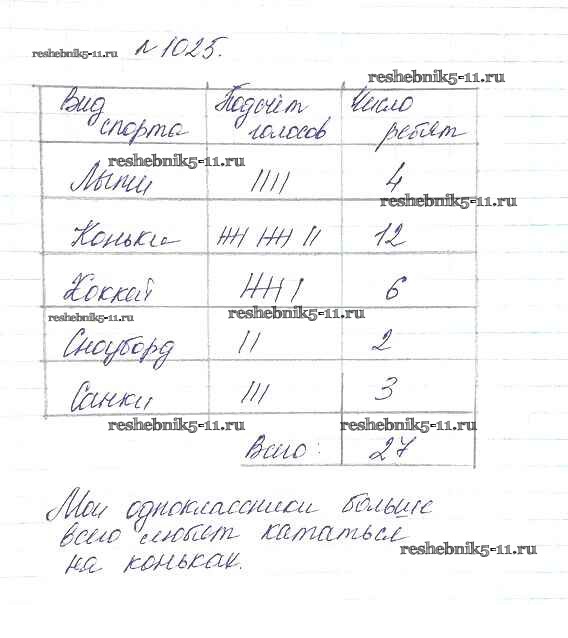 №1025.
reshebnik5-11.ru
reshebnik5-11.ru
Вид спорта Подсчёт голосов Число ребят
reshebnik5-11.ru
Лыжи |||| 4
reshebnik5-11.ru
Коньки 卌 卌 || 12
Хоккей 卌 | 6
reshebnik5-11.ru reshebnik5-11.ru
Сноуборд || 2
Санки ||| 3
reshebnik5-11.ru reshebnik5-11.ru
Всего: 27
Мои одноклассники больше
всего любят кататься
на коньках.
reshebnik5-11.ru